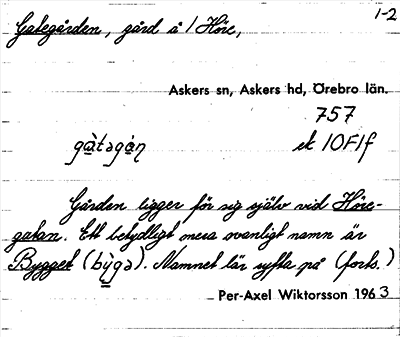 1-2
Gategården, gård å 1 Höre,
Askers sn, Askers hd, Örebro län.
757
gàtəgán ek 10F1f
Gården ligger för sig själv vid Höre-
gatan. Ett betydligt mera ovanligt namn är
Bygget (bỳgə). Namnet lär syfta på (forts.)
Per-Axel Wiktorsson 1963